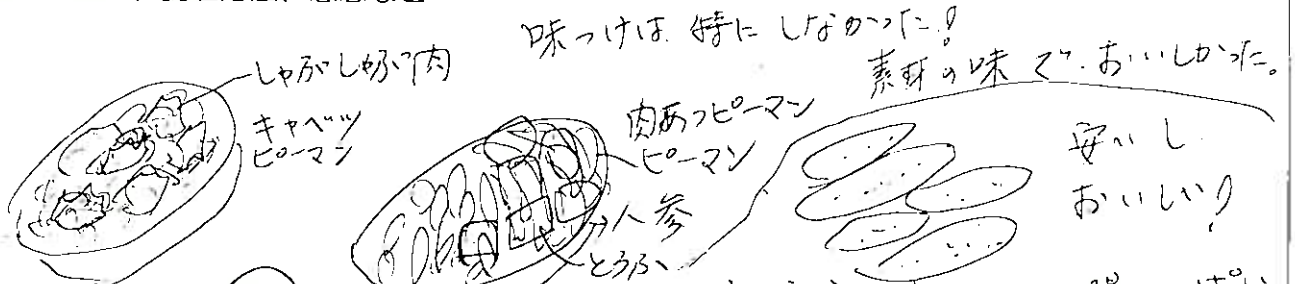 味つけは 特に しなかった!
素材の味で おいしかった。
しゃぶしゃぶ肉
キャベツ
ピーマン
肉あつピーマン
ピーマン
人参
とうふ
安いし
おいしい!